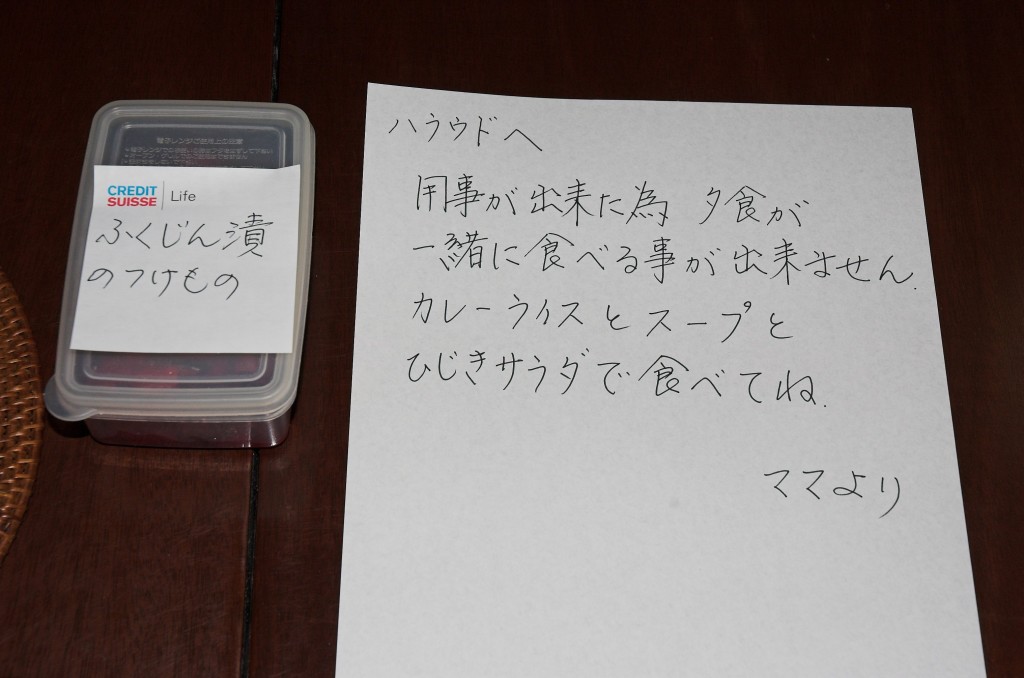 CREDIT SUISSE | Life
ふくじん漬
のつけもの
ハラウドへ
用事が出来た為 夕食が
一緒に食べる事が出来ません.
カレーライスとスープと
ひじきサラダで食べてね.
ママより